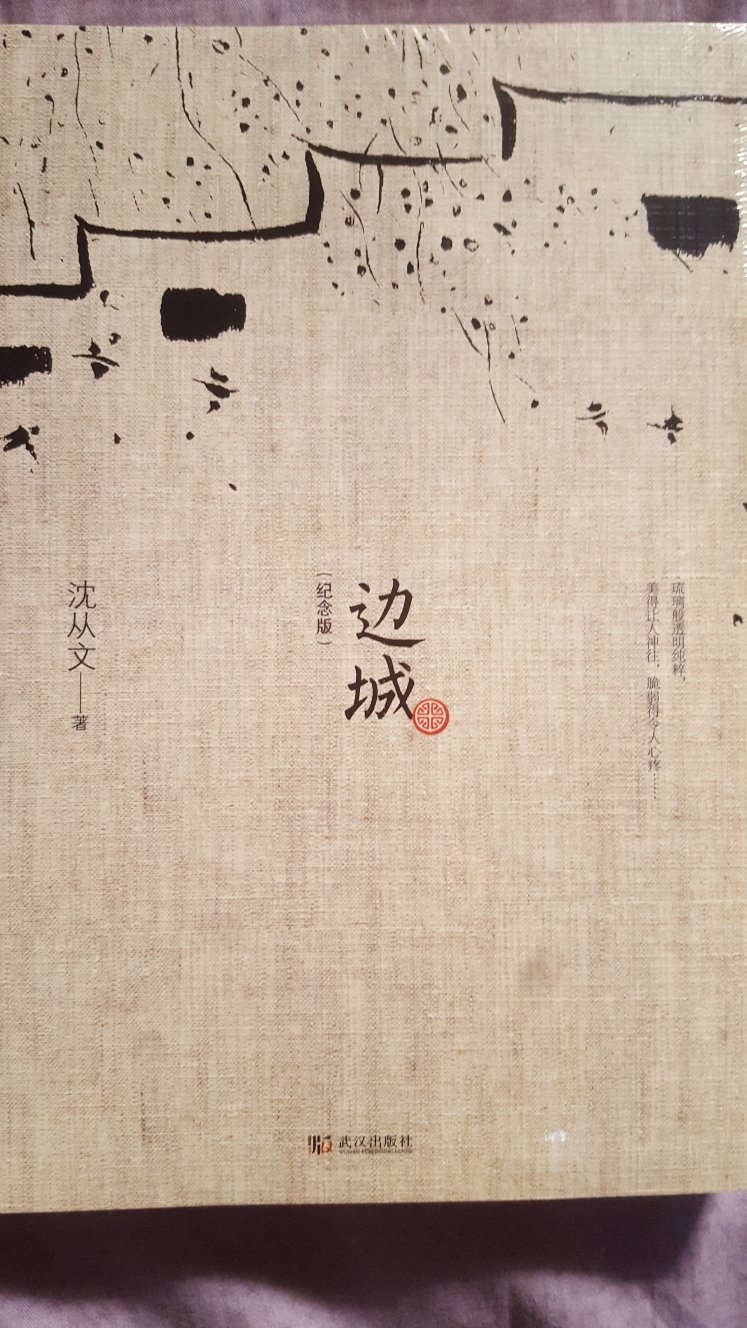 琉璃般透明纯粹,
美得让人神往,脆弱得令人心疼……
边城
(纪念版)
沈从文——著
武汉出版社
WUHAN PUBLISHING HOUSE